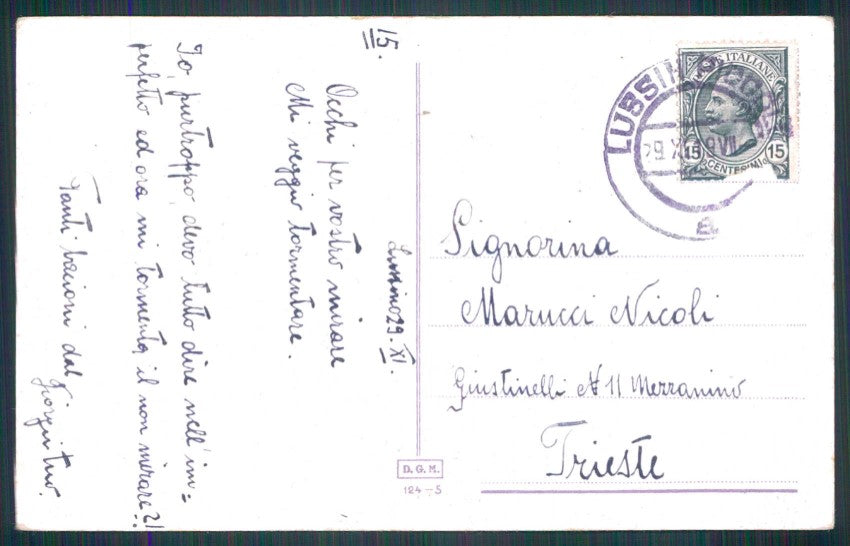 15.
Lussino 29. XI.
Occhi per vostro mirare
Mi veggio tormentare.
Io, purtroppo, devo tutto dire nell'im=
perfetto ed ora mi tormenta il non mirare?!
Tanti bacioni dal
Giorgitto.
LUSSIN
29 XI 9 VII
a
POSTE ITALIANE
15 15
CENTESIMI
Signorina
Marucci Nicoli
Giustinelli N 11 Mezzanino
Trieste
D. G. M.
124-5